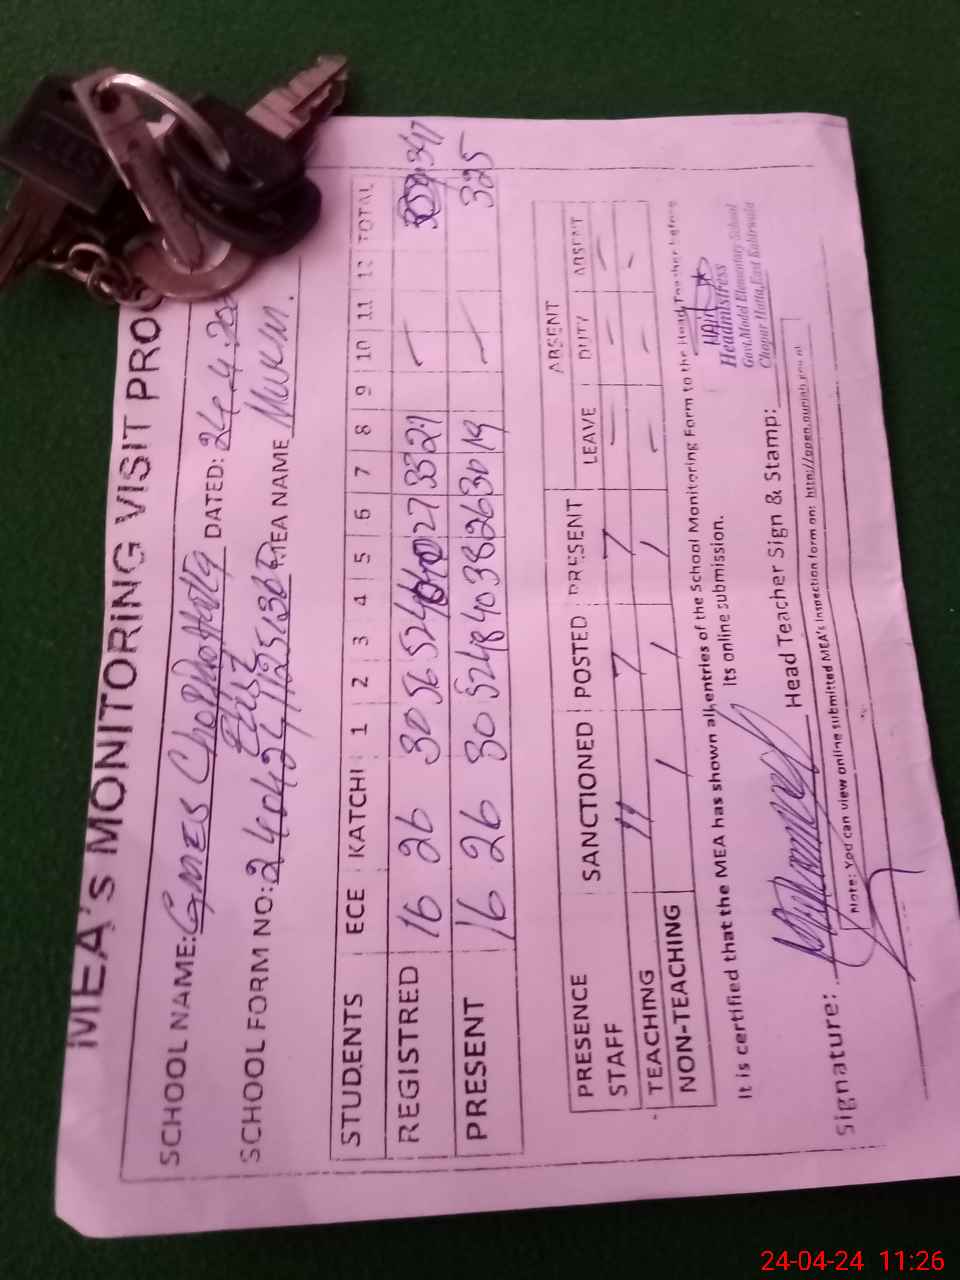 MEA's MONITORING VISIT PRO
SCHOOL NAME: GMES Chopar Hatta DATED: 24.4.20
SCHOOL FORM NO: MEA NAME
STUDENTS ECE KATCHI 1 2 3 4 5 6 7 8 9 10 11 12 TOTAL
REGISTRED 16 26 30 56 52 40 27 33 27 347
PRESENT 16 26 30 52 48 40 38 26 30 19 325
PRESENCE SANCTIONED POSTED PRESENT ABSENT
STAFF LEAVE DUTY ABSENT
11 7 7
TEACHING
1 1 1
NON-TEACHING
It is certified that the MEA has shown all entries of the School Monitoring Form to the Head Teacher before
its online submission.
Headmistress
Govt.Model Elementary School
Chopar Hatta,East Kabirwala
Signature: Head Teacher Sign & Stamp:
Note: You can view online submitted MEA's inspection form on: http://open.punjab.gov.pk
24-04-24 11:26